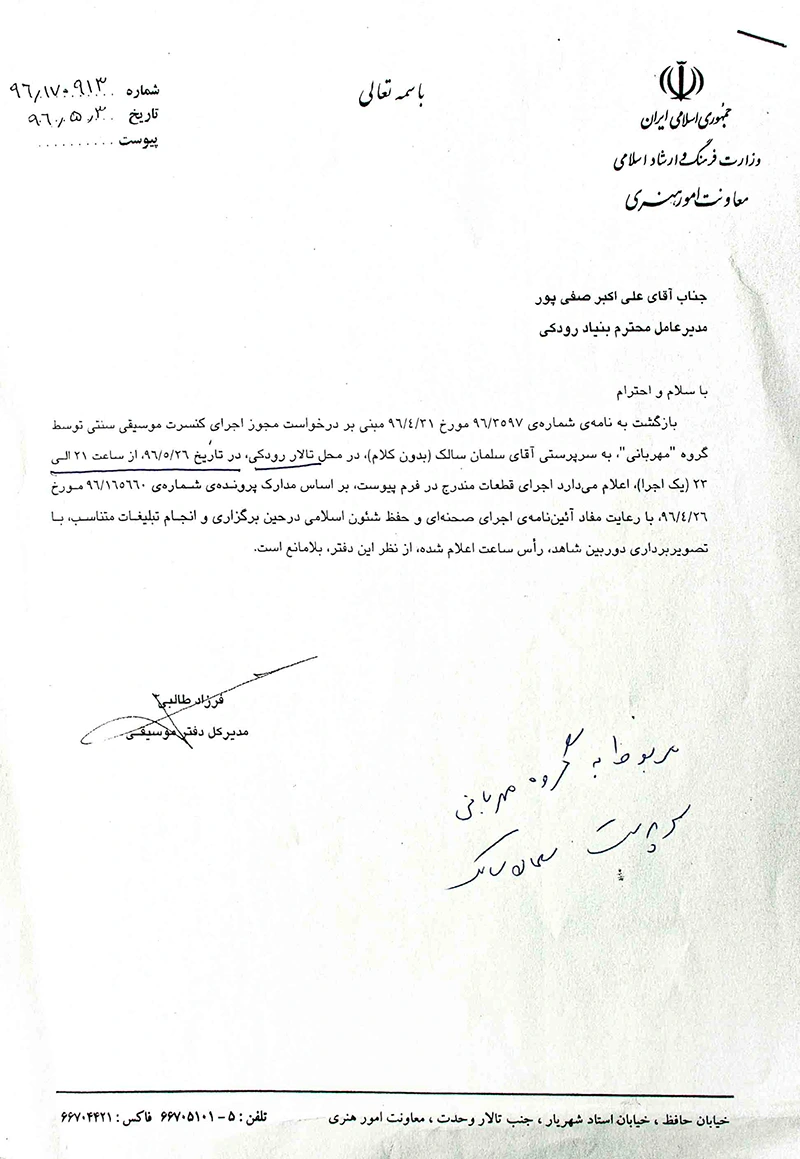 باسمه تعالی
جمهوری اسلامی ایران
وزارت فرهنگ و ارشاد اسلامی
معاونت امور هنری
شماره ۹۶/۱۷۰۹۱۳
تاریخ ۹۶/۵/۳
پیوست ..........
جناب آقای علی اکبر صفی پور
مدیرعامل محترم بنیاد رودکی
با سلام و احترام
بازگشت به نامه‌ی شماره‌ی ۹۶/۳۵۹۷ مورخ ۹۶/۴/۳۱ مبنی بر درخواست مجوز اجرای کنسرت موسیقی سنتی توسط
گروه "مهربانی"، به سرپرستی آقای سلمان سالک (بدون کلام)، در محل تالار رودکی، در تاریخ ۹۶/۵/۲۶، از ساعت ۲۱ الی
۲۳ (یک اجرا)، اعلام می‌دارد اجرای قطعات مندرج در فرم پیوست، بر اساس مدارک پرونده‌ی شماره‌ی ۹۶/۱۶۵۶۶۰ مورخ
۹۶/۴/۲۶، با رعایت مفاد آئین‌نامه‌ی اجرای صحنه‌ای و حفظ شئون اسلامی درحین برگزاری و انجام تبلیغات متناسب، با
تصویربرداری دوربین شاهد، رأس ساعت اعلام شده، از نظر این دفتر، بلامانع است.
فرزاد طالبی
مدیرکل دفتر موسیقی
مربوط به گروه مهربانی
سرپرست سلمان سالک
خیابان حافظ ، خیابان استاد شهریار ، جنب تالار وحدت ، معاونت امور هنری تلفن : ۵ - ۶۶۷۰۵۱۰۱ فاکس : ۶۶۷۰۴۴۲۱